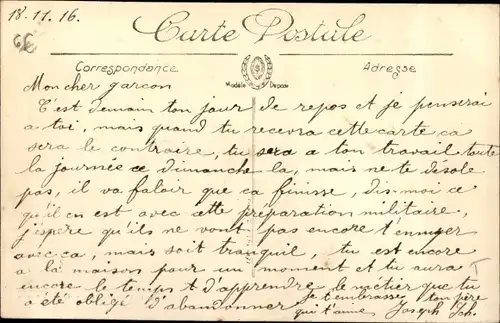 18.11.16.
Carte Postale
Correspondance
Adresse
Modèle Déposé
Mon cher garcon
C'est demain ton jour de repos et je penserai
a toi, mais quand tu recevra cette carte ca
sera le contraire, tu sera a ton travail toute
la journée ce dimanche la, mais ne te désole
pas, il va faloir que ca finisse, dis-moi ce
qu'il en est avec cette préparation militaire,
j'espère qu'ils ne vont pas encore t'ennuyer
avec ca, mais soit tranquil, tu est encore
a la maison pour un moment et tu aura
encore le temps d'apprendre le métier que tu
a été obligé d'abandonner
je t'embrasse ton père
qui t'aime Joseph